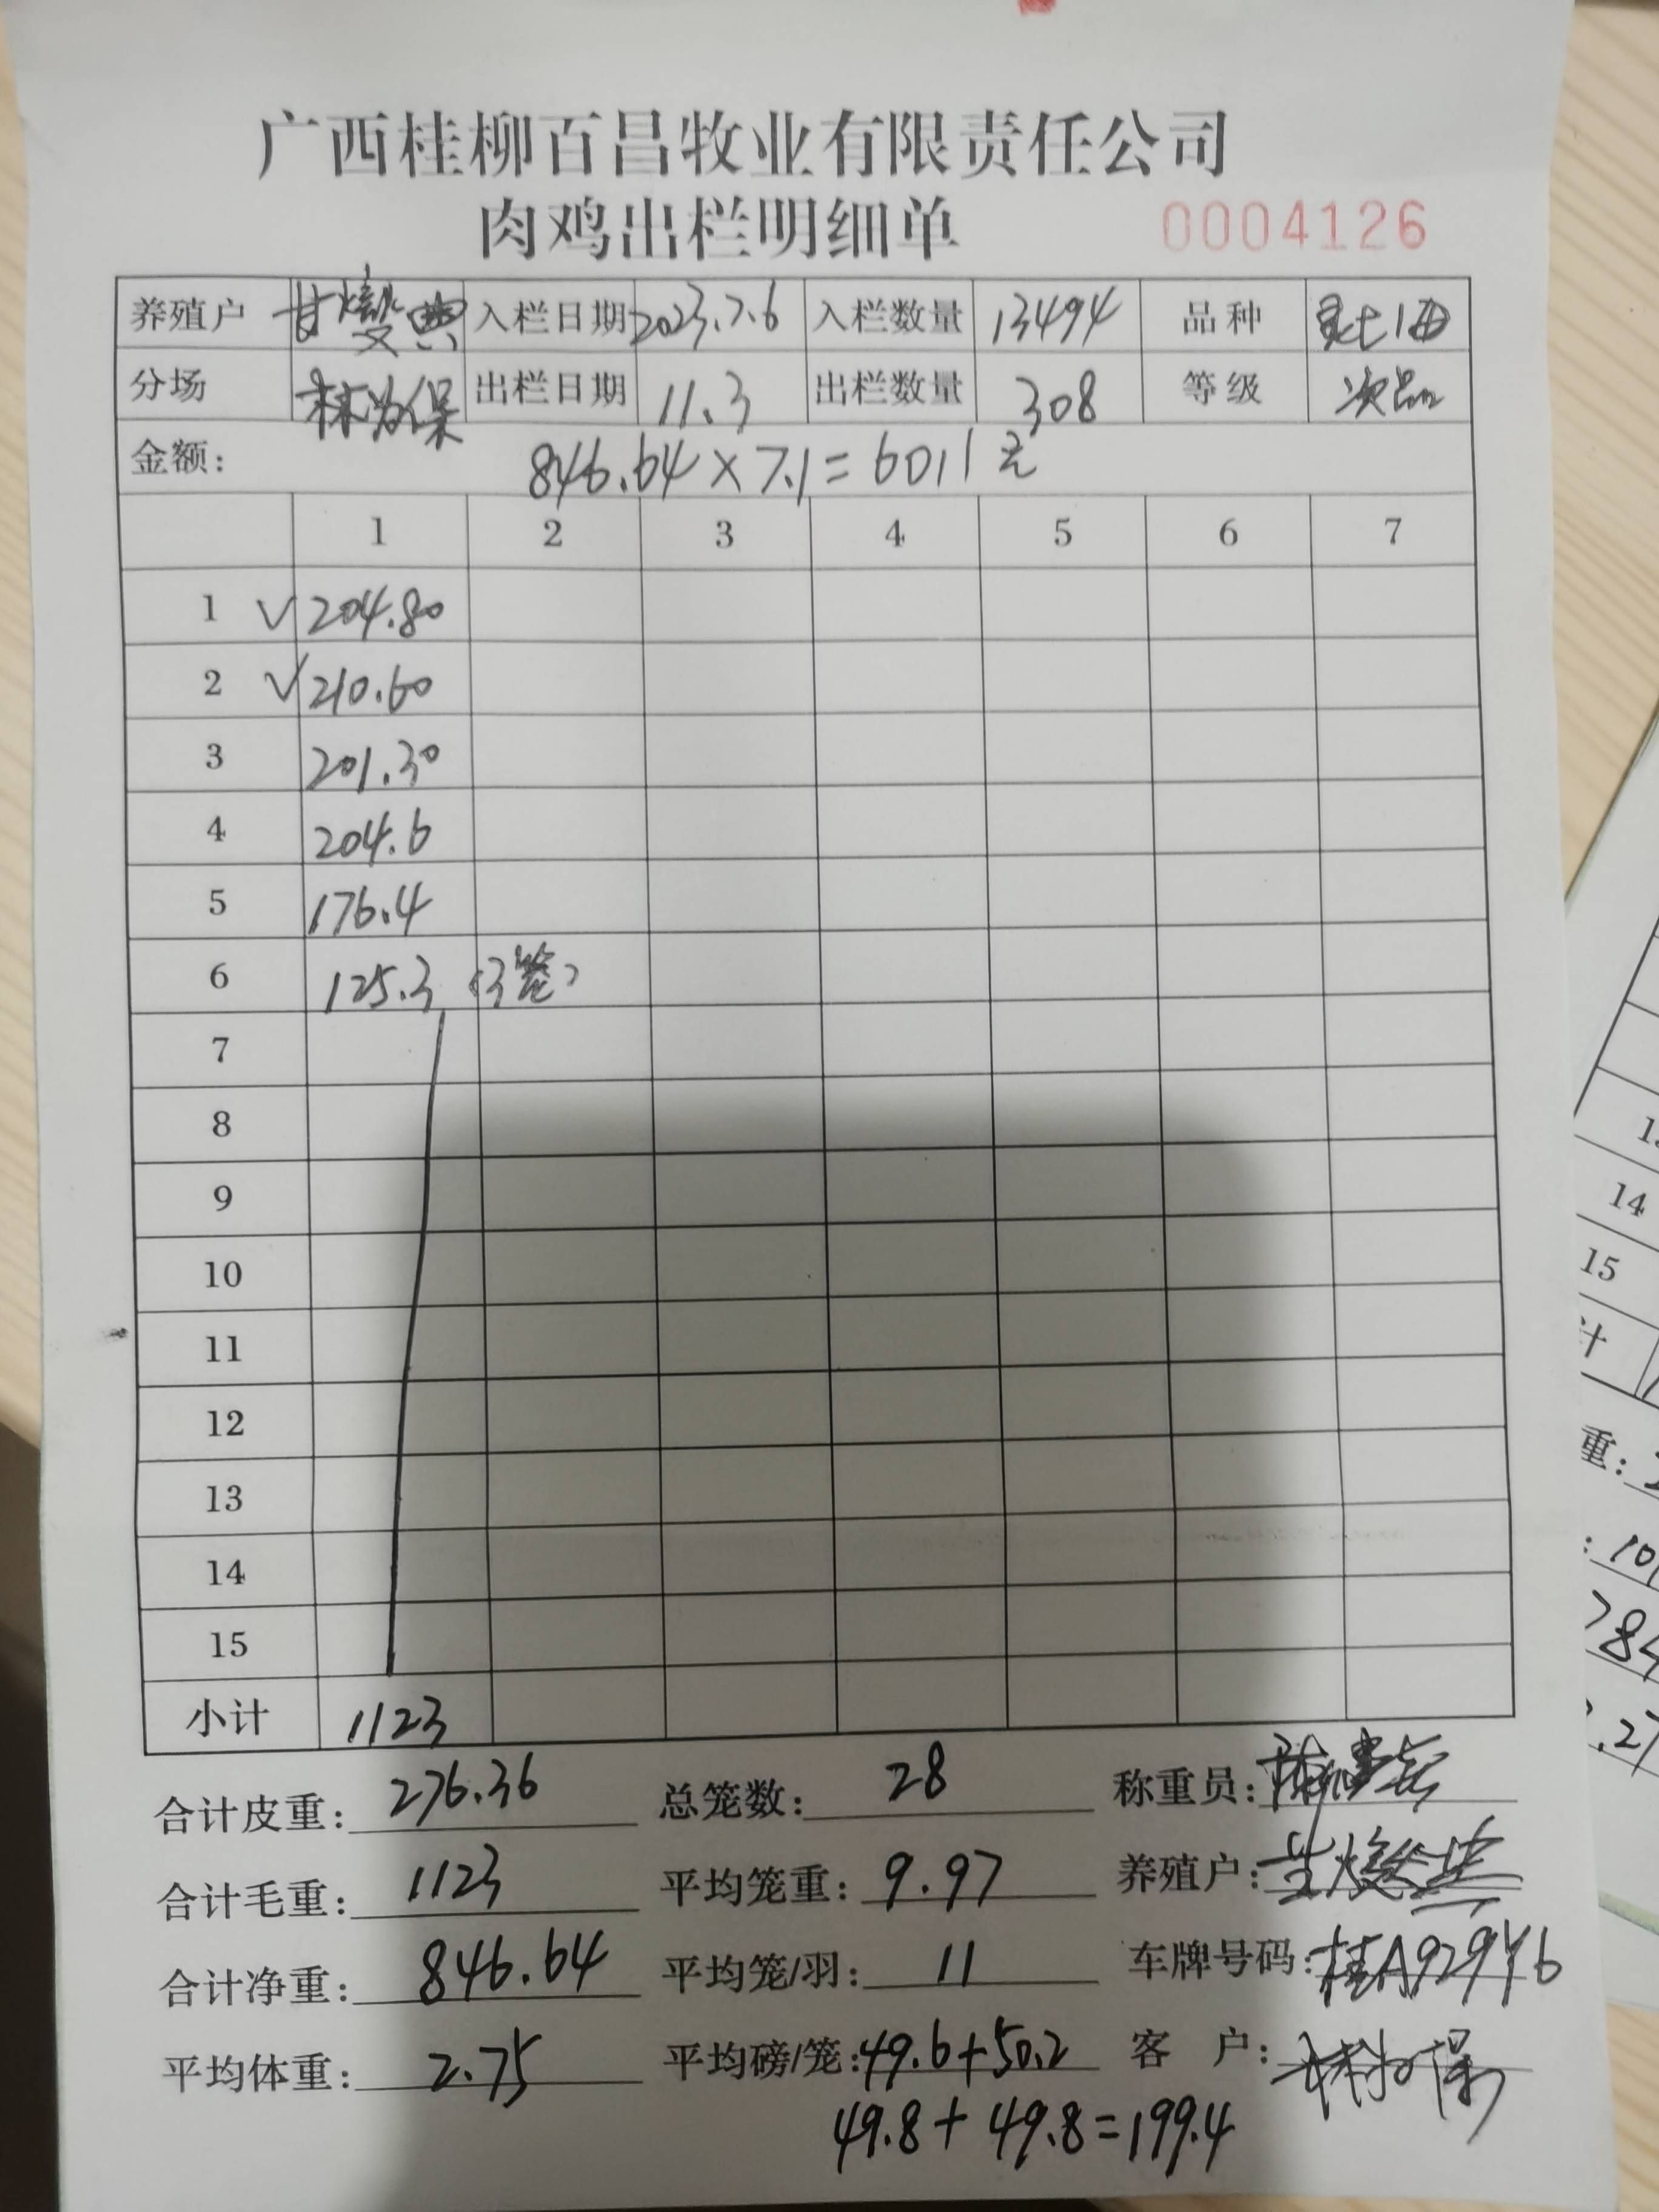 广西桂柳百昌牧业有限责任公司
肉鸡出栏明细单 0004126
养殖户 甘焕典 入栏日期 2023.7.6 入栏数量 13494 品种
分场 林为保 出栏日期 11.3 出栏数量 308 等级 次品
金额: 846.64×7.1=6011元
1 2 3 4 5 6 7
1 √ 204.80
2 √ 210.60
3 201.30
4 204.6
5 176.4
6 125.3 (3笼)
7
8
9
10
11
12
13
14
15
小计 1123
合计皮重: 276.36 总笼数: 28 称重员:
合计毛重: 1123 平均笼重: 9.97 养殖户: 甘焕典
合计净重: 846.64 平均笼/羽: 11 车牌号码: 桂A929Y6
平均体重: 2.75 平均磅/笼: 49.6+50.2 客 户:
49.8+49.8=199.4
14
15
计
重:
: 10
784
.27